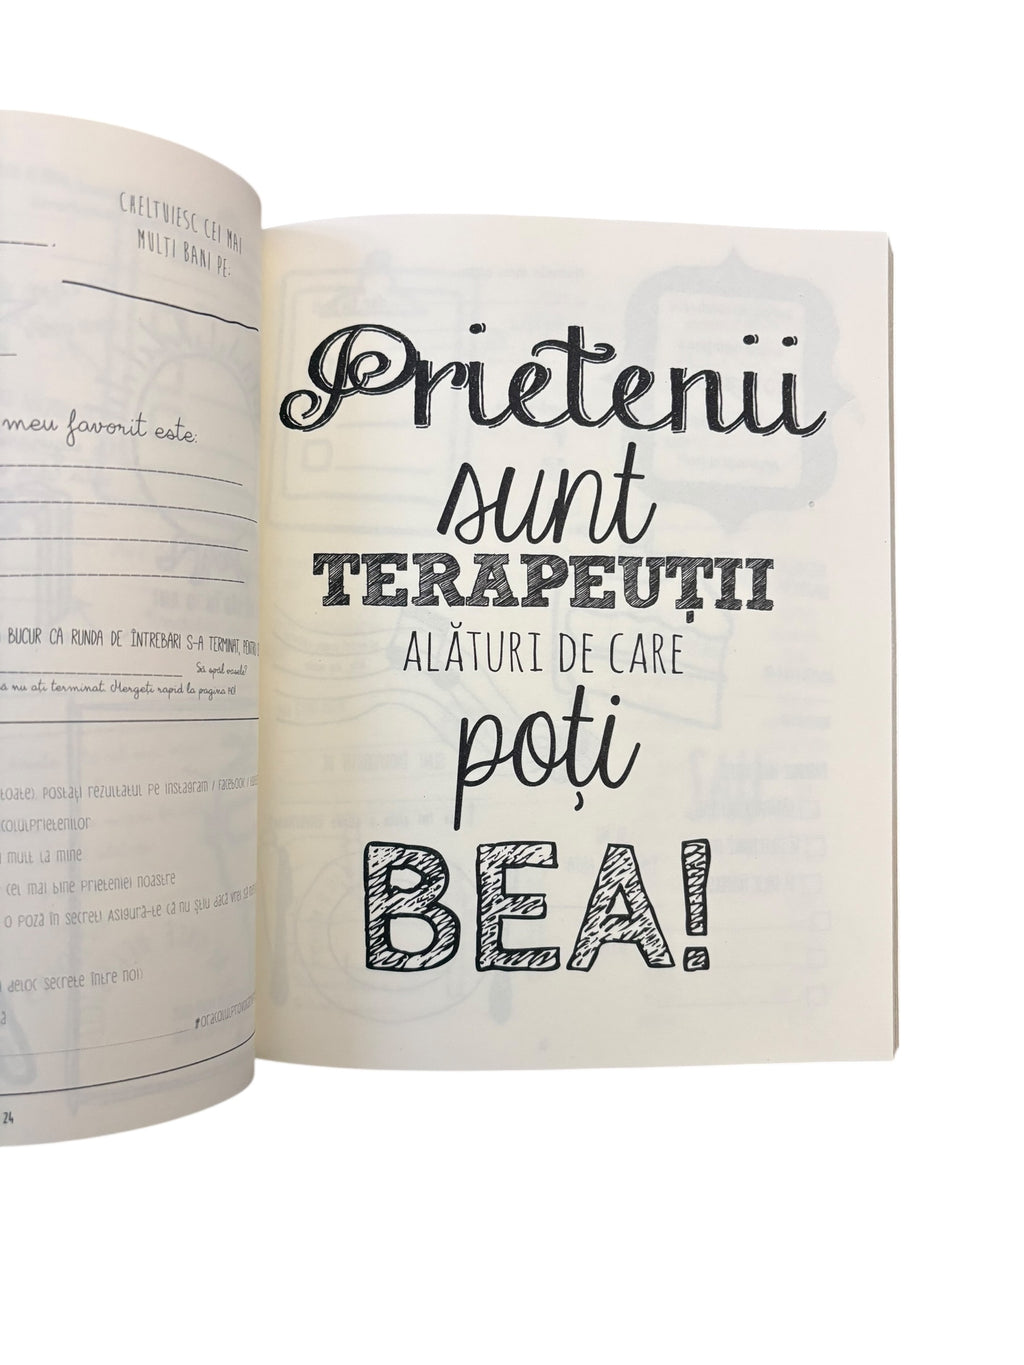 CHELTUIESC CEI MAI
MULȚI BANI PE:
meu favorit este:
BUCUR CĂ RUNDA DE ÎNTREBĂRI S-A TERMINAT, PENTRU
Să spăl vasele?
nu ați terminat. Mergeți rapid la pagina
toate). Postați rezultatul pe Instagram / Facebook /
mult la mine
cel mai bine prieteniei noastre
o poză în secret! Asigură-te că nu știu dacă vrei să
deloc secrete între noi)
24
Prietenii
sunt
TERAPEUȚII
ALĂTURI DE CARE
poți
BEA!